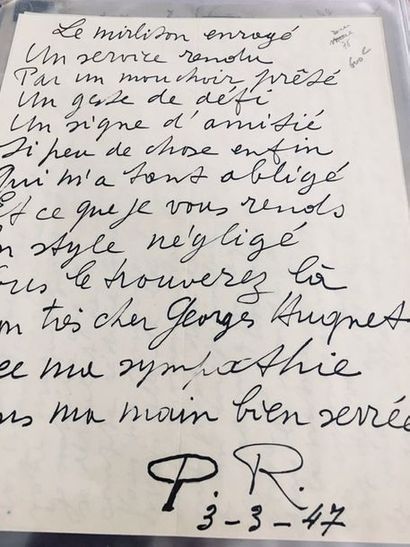 Le mirliton enragé
Un service rendu
Par un mouchoir prêté
Un geste de défi
Un signe d'amitié
Si peu de chose enfin
Qui m'a tant obligé
Est ce que je vous rends
n style négligé
ous le trouverez là
on très cher Georges Hugnet
ec ma sympathie
ns ma main bien serrée
P. R.
3-3-47